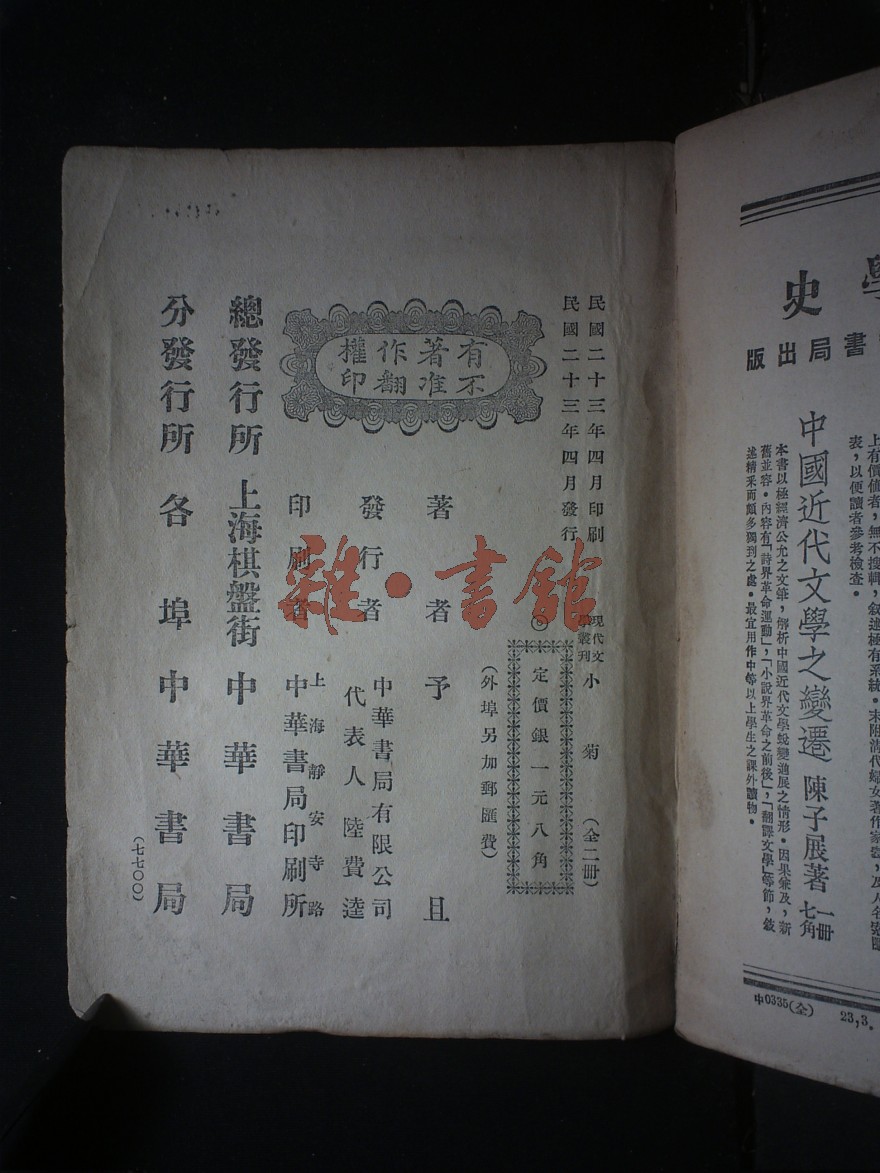 學史
書局出版
上有價值者，無不搜輯，敍述極有系統。末附清代婦女著作家
表，以便讀者參考檢查。
中國近代文學之變遷 陳子展著 一冊 七角
本書以極經濟公允之文筆，解析中國近代文學蛻變進展之情形。因果兼及，新
舊並容。內容有「詩界革命運動」，「小說界革命之前後」，「翻譯文學」等節，敍
述精釆而頗多獨到之處。最宜用作中等以上學生之課外讀物。
中0335(全) 23,3.
民國二十三年四月印刷
民國二十三年四月發行
現代文學叢刊 小菊 （全二冊）
定價銀一元八角
（外埠另加郵匯費）
有著作權
不准翻印
著者 予且
發行者 中華書局有限公司
代表人 陸費逵
印刷者 上海靜安寺路
中華書局印刷所
總發行所 上海棋盤街 中華書局
分發行所 各埠中華書局
（七七〇〇）
雜·書館